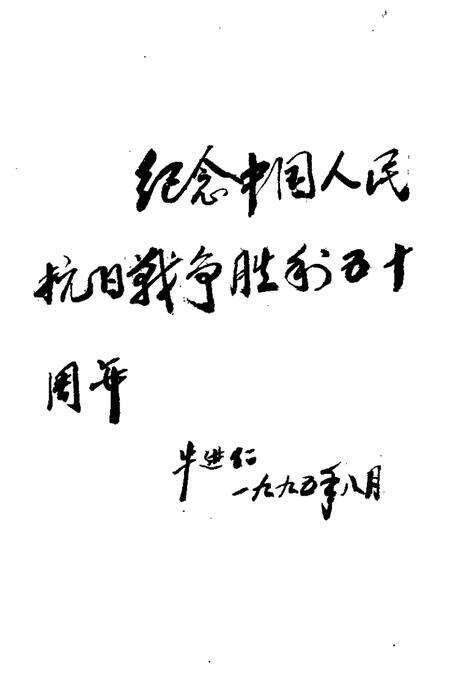 纪念中国人民
抗日戰争胜利五十
周年
牛进仁
一九九五年八月